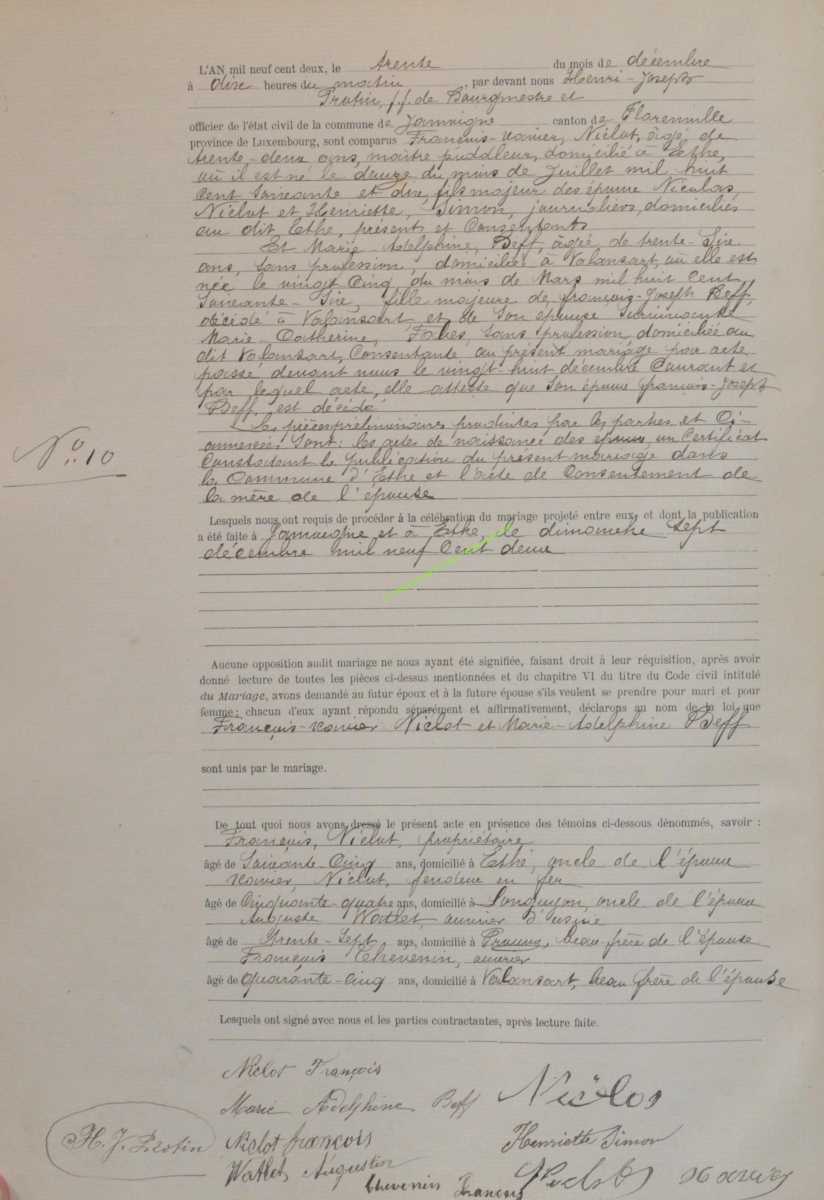 L'AN mil neuf cent deux, le trente du mois de décembre
à dix heures du matin, par devant nous Henri-Joseph
f.f. de Bourgmestre et
officier de l'état civil de la commune de Jamoigne canton de Florenville
province de Luxembourg, sont comparus François-xavier, Niclot, âgé de
trente-deux ans, maître puddleur, domicilié à Ethe,
où il est né le douze du mois de Juillet mil huit
cent soixante et dix, fils majeur des époux Nicolas,
Niclot et Henriette, Simon, journaliers, domiciliés
au dit, Ethe, présents et Consentants
Et Marie-Adelphine, Beff, âgée, de trente-Six
ans, sans profession, domiciliée à Valansart, où elle est
née le vingt Cinq, du mois de Mars mil huit Cent
Soixante-Six, fille majeure de françois-Joseph Beff,
décédé à Valansart et de Son épouse Survivante
Marie-Catherine, sans profession, domiciliée au
dit Valansart, Consentante au présent mariage par acte
passé devant nous le vingt huit décembre Courant et
par lequel acte, elle atteste que son époux françois-Joseph
Beff, est décédé
Les pièces préliminaires produites par les parties et Ci-
annexées Sont: les actes de naissance des époux, un Certificat
Constatant la publication du présent mariage dans
la Commune d'Ethe et l'acte de Consentement de
la mère de l'épouse
N° 10
Lesquels nous ont requis de procéder à la célébration du mariage projeté entre eux, et dont la publication
a été faite à Jamoigne et à Ethe, le dimanche sept
décembre mil neuf Cent deux
Aucune opposition audit mariage ne nous ayant été signifiée, faisant droit à leur réquisition, après avoir
donné lecture de toutes les pièces ci-dessus mentionnées et du chapitre VI du titre du Code civil intitulé
du Mariage, avons demandé au futur époux et à la future épouse s'ils veulent se prendre pour mari et pour
femme; chacun d'eux ayant répondu séparément et affirmativement, déclarons au nom de la loi que
François-xavier Niclot et Marie-Adelphine Beff
sont unis par le mariage.
De tout quoi nous avons dressé le présent acte en présence des témoins ci-dessous dénommés, savoir :
François, Niclot, propriétaire
âgé de Soixante-Cinq ans, domicilié à Ethe, oncle de l'époux
xavier, Niclot, fendeur en fer
âgé de Cinquante-quatre ans, domicilié à Longuyon, oncle de l'époux
Auguste Watlet, ouvrier d'usine
âgé de Trente-Sept ans, domicilié à beau frère de l'épouse
François Thevenin, ouvrier
âgé de quarante-cinq ans, domicilié à Valansart, beau frère de l'épouse
Lesquels ont signé avec nous et les parties contractantes, après lecture faite.
Niclot François
Marie Adelphine Beff Nicolas
H. J. Niclot françois Henriette Simon
Watlet Augustin
Thevenin François